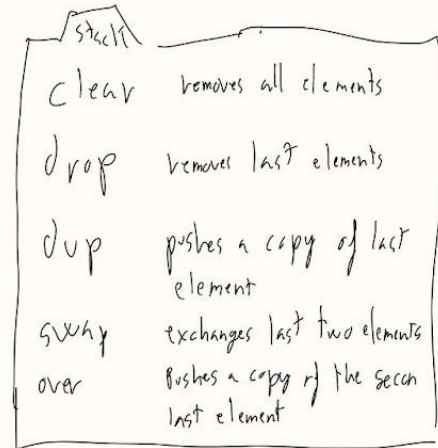 stack
clear removes all elements
drop removes last elements
dup pushes a copy of last
element
swap exchanges last two elements
over Pushes a copy of the secon
last element